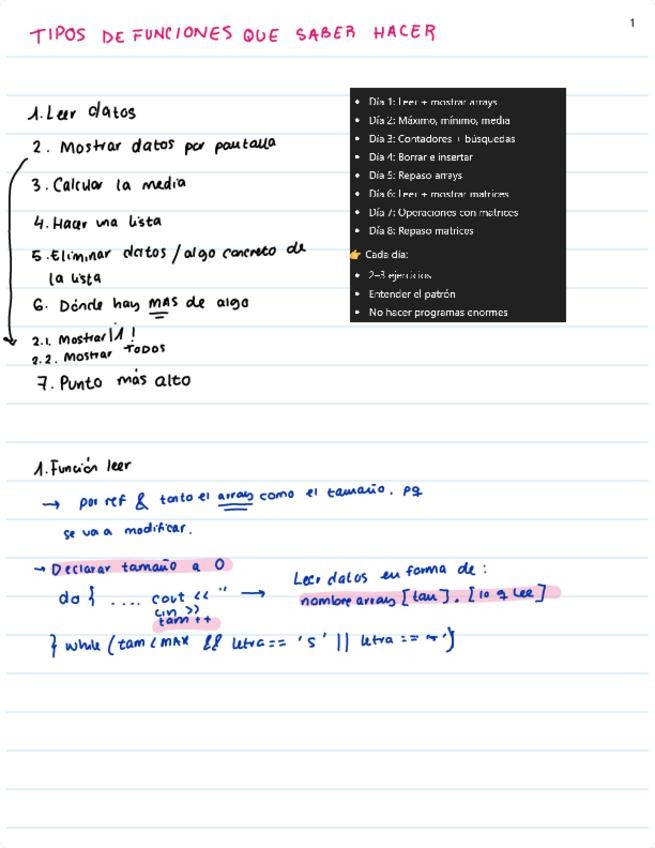 1
TIPOS DE FUNCIONES QUE SABER HACER
1. Leer datos
2. Mostrar datos por pantalla
3. Calcular la media
4. Hacer una lista
5. Eliminar datos / algo concreto de
la lista
6. Dónde hay MAS de algo
2.1. Mostrar 1!
2.2. Mostrar TODOS
7. Punto más alto
• Día 1: Leer + mostrar arrays
• Día 2: Máximo, mínimo, media
• Día 3: Contadores + búsquedas
• Día 4: Borrar e insertar
• Día 5: Repaso arrays
• Día 6: Leer + mostrar matrices
• Día 7: Operaciones con matrices
• Día 8: Repaso matrices
👉 Cada día:
• 2–3 ejercicios
• Entender el patrón
• No hacer programas enormes
1. Función leer
→ por ref & tanto el array como el tamaño. pq
se va a modificar.
→ Declarar tamaño a 0
do { .... cout << " →
cin >>
tam ++
Leer datos en forma de :
nombre array [tam] . [lo q lee]
} while (tam < MAX && letra == 's' || letra ==